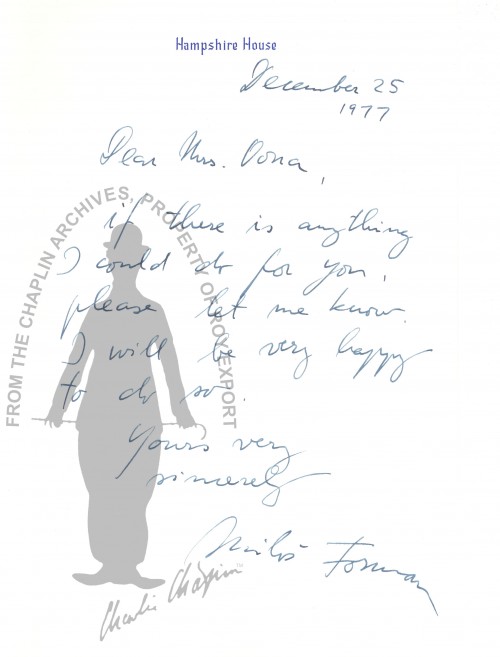 Hampshire House
December 25
1977
Dear Mrs. Oona,
if there is anything
I could do for you,
please let me know.
I will be very happy
to do so.
Yours very
sincerely
Miloš Forman
FROM THE CHAPLIN ARCHIVES, PROPERTY OF ROY EXPORT
Charlie Chaplin™